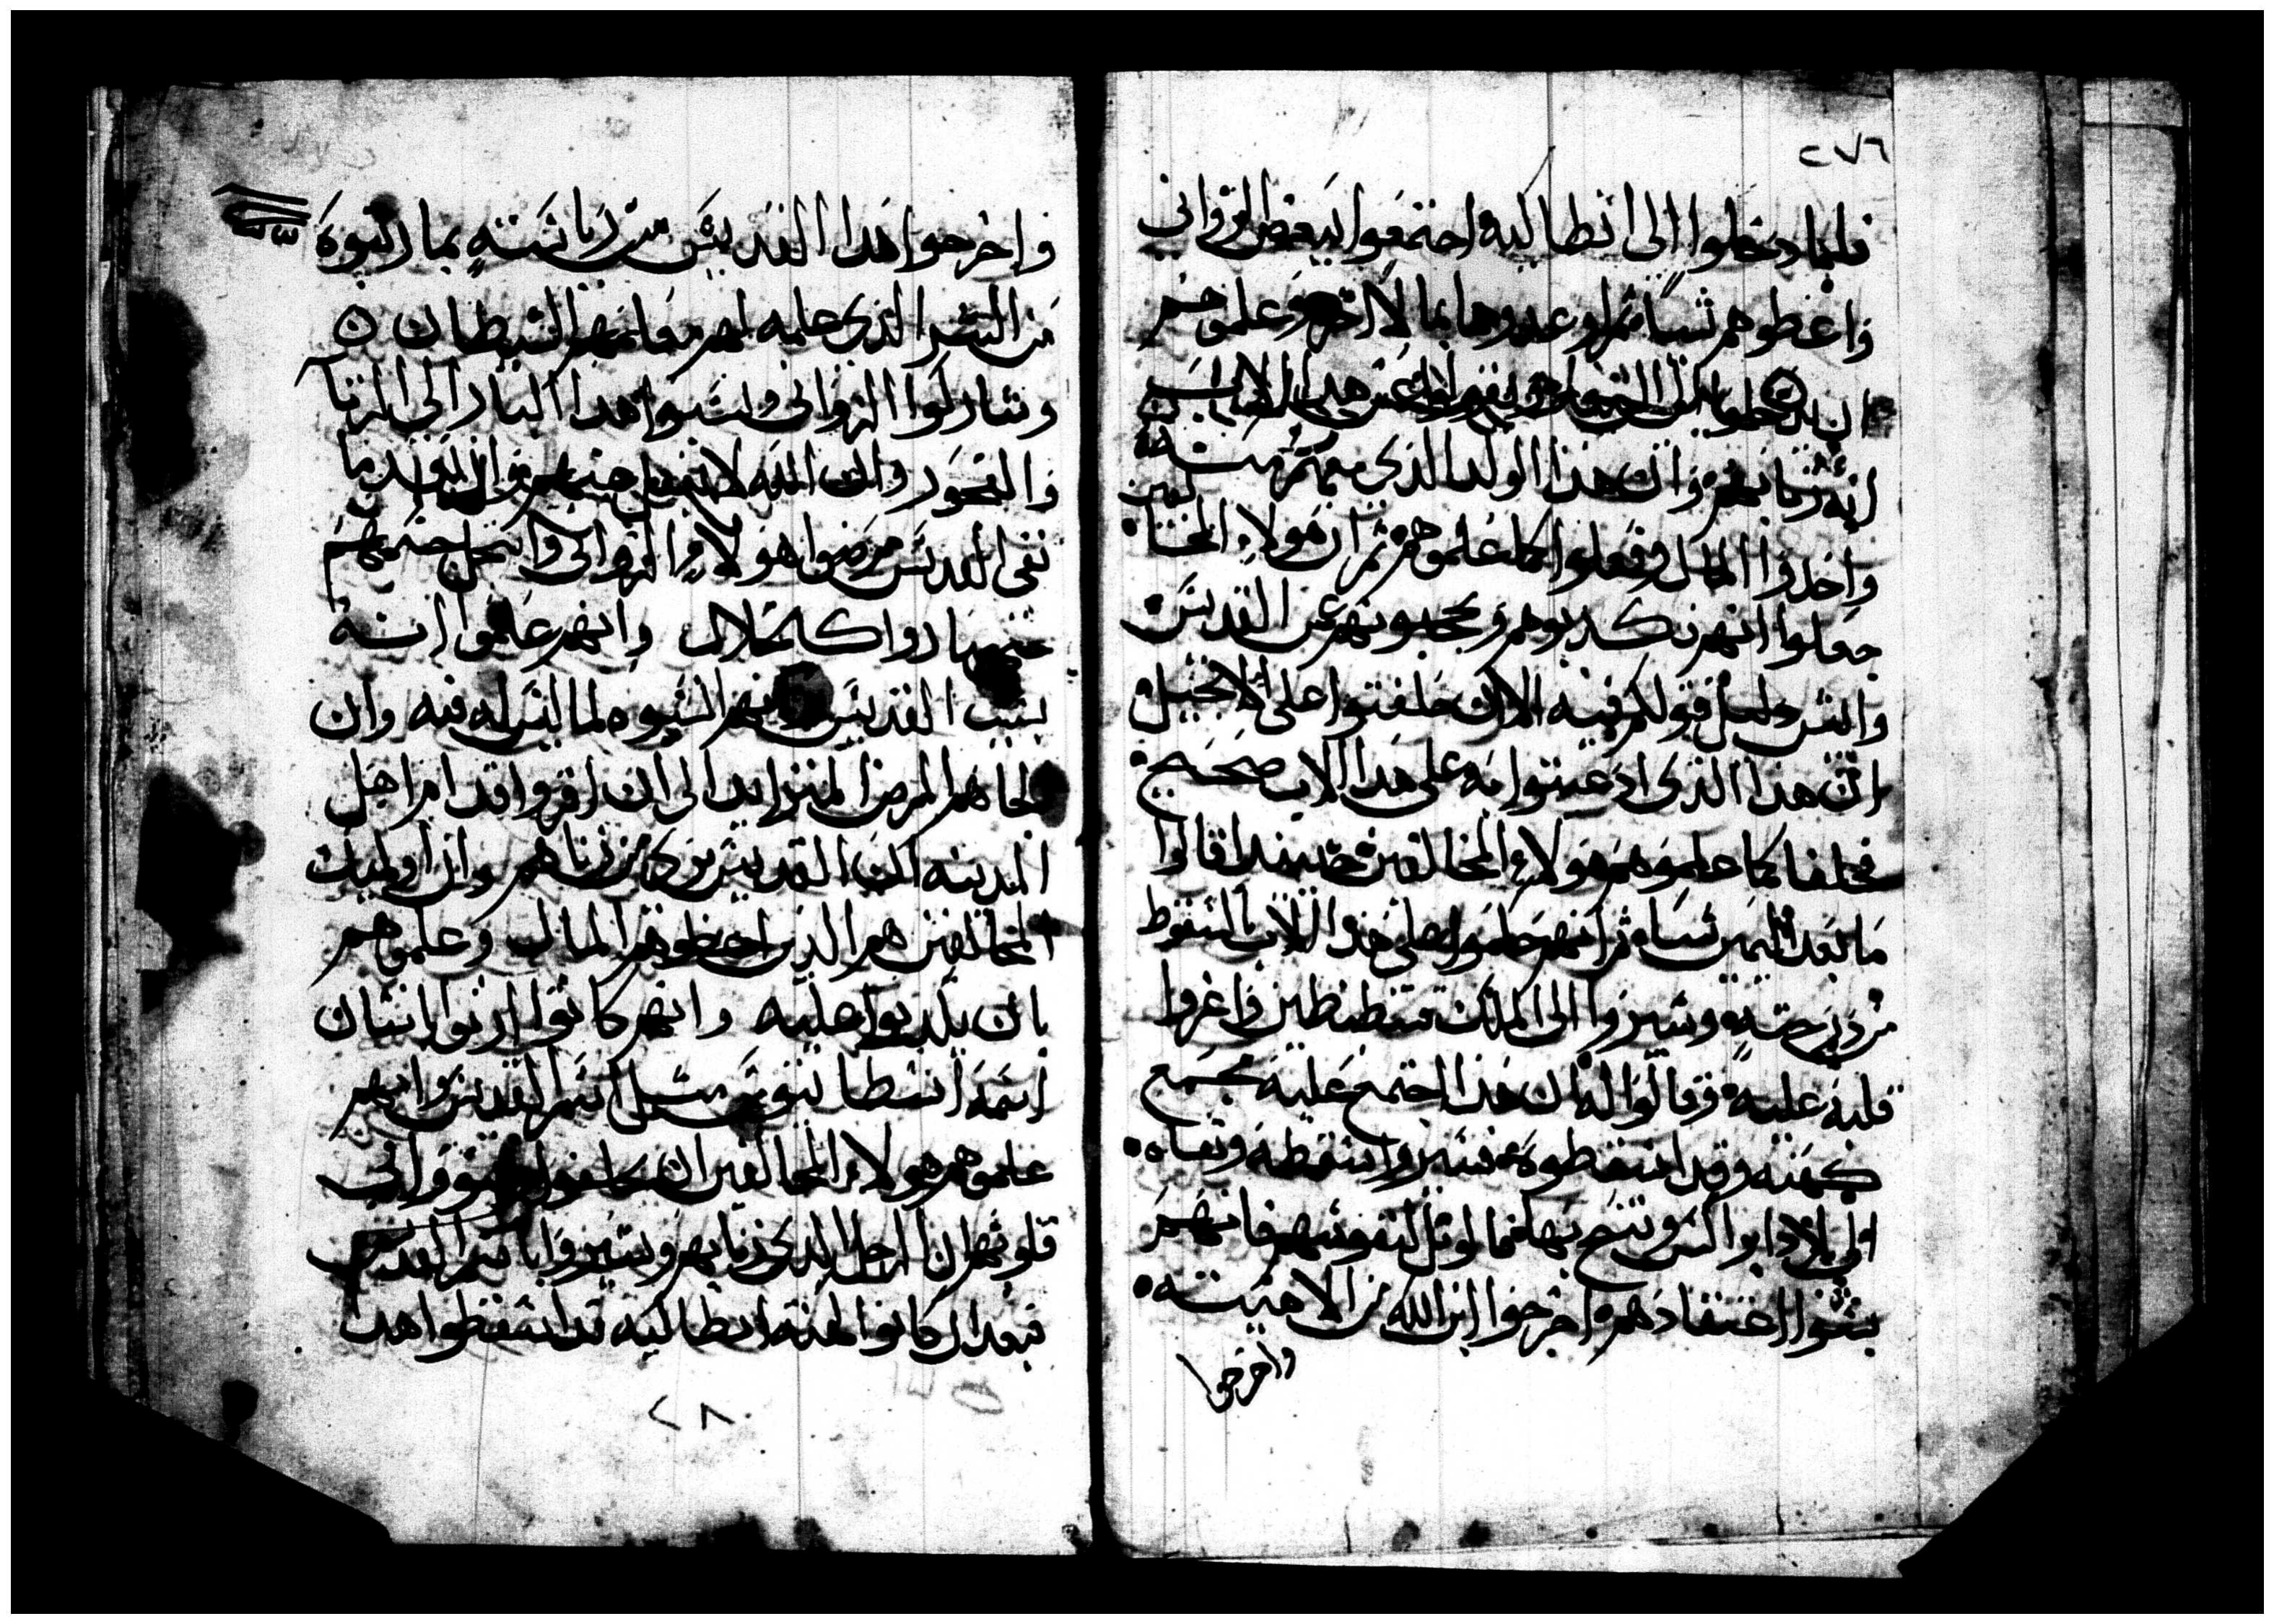 ٢٧٦
فلما دخلوا الى انطاكيه اجتمعوا ببعض الزواني
واعطوهم شياً ثم اوعدوها بمالا اخر وعلموهم
ان هذا الاب
انه زنا بهم وان هذا الولد الذي معهم منه
واخدوا المال وفعلوا كما علموهم ثم ان هولاء المخالفين
جعلوا انهم يكدبوهم ويحجبونهم عن القديس
وليس نحمل قولكم فيه الا ان حلفتوا على الانجيل
ان هذا الذي ادعيتوا به على هدا الاب صحيح
فحلفا كما علموهم هولاء المخالفين حينيدا قالوا
ما بعد اليمين شياء ثم انهم حكموا على هذا الاب بالسقوط
من درجته وسيروا الى الملك قسطنطين واغروا
قلبه عليه وقالوا له ان هذا اجتمع عليه مجمع
كهنه وقد اسقطوه فسير واسقطه ونفاه
الى بلاد ابراكس وتنيح بها فما لوئل لنفوسهم فانهم
بسوا اعتقادهم اخرجوا ابن الله من الاهيته
واخرجوا
واخرجوا هدا القديس من رياسته بما ارتبوه
من الشر الذي علمه لهم معلمهم الشيطان
وشاركوا الزواني ونسبوا هدا البار الى الزنا
والفجور وان الله لا يغفل عنهم وان بعد ما
نفي القديس مرضوا هولاء الزواني وانحل جسمهم
حتى صاروا كالخلال وانهم علموا ان
بسبب القديس انهم نسبوه لما ليس له فيه وان
الجاهم المرض المتزايد الى ان اقروا قدام اهل
المدينه ان القديس بري من زناهم وان اوليك
المخالفين هم الذين اعطوهم المال وعلموهم
بان يكدبوا عليه وانهم كانوا ازنوا بانسان
اسمه انسطاتيوس مثل اسم القديس وانهم
علموهم هولاء المخالفين ان يحلفوا وينووا في
قلوبهم ان الرجل الذي زنا بهم ويسيروا باسم القديس
فبعد ان كانوا كهنة انطاكيه قد اسقطوا هدا
٢٨٠